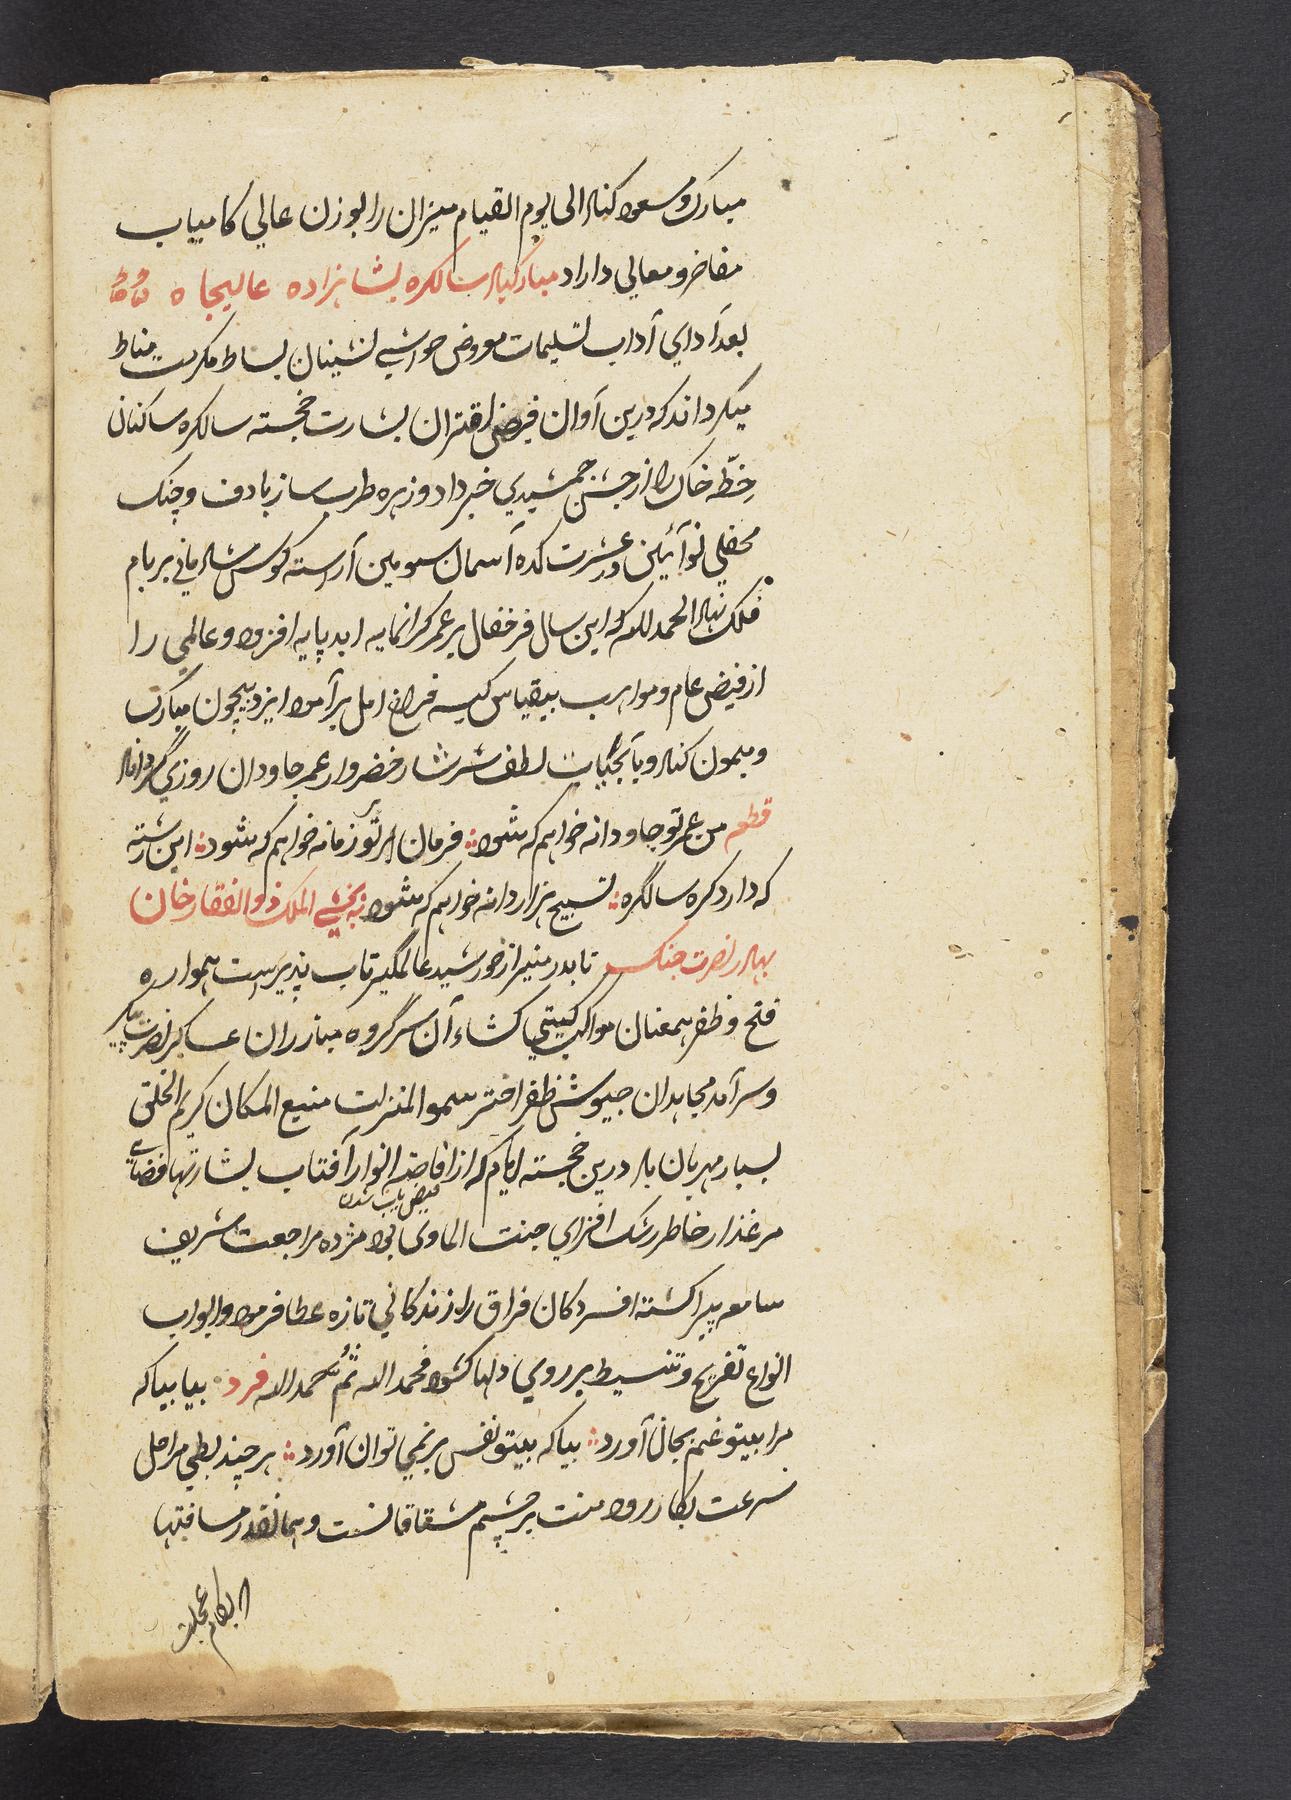 مبارک و مسعود کناد الی یوم القیام میزان را بوزن عالی کامیاب
مفاخر و معالی داراد مبارکباد سالکره بشاهزاده عالیجاه
بعد آدای آداب تسلیمات معروض حواشی نشینان بساط مکرمت مناط
میکرداند که درین آوان فیض اقتران بشارت خجسته سالکره ساکنان
خطّه خاک را از جشن جمشیدی خبر داد و زهره طرب ساز با دف و چنک
محفلی نوآئین در عشرت کده آسمان سومین آراسته کوس شادمانی بر بام
فلک نهاد الحمد للله که این سال فرخفال بر عمر کرانمایه ابد پایه افزود و عالمی را
از فیض عام و مواهب بیقیاس کیسه فراخ امل برآمود ایزد بیچون مبارک
و میمون کناد و بآبحیات لطف سرشار خضروار عمر جاودان روزی گرداناد
قطعه من عمر تو جاودانه خواهم که شود فرمان بر تو زمانه خواهم که شود این رشته
که دارد کره سالگره تسبیح هزار دانه خواهم که شود به بخشی الملک ذوالفقار خان
بهادر نصرت جنک تا بدر منیر از خورشید عالمگیر تاب پذیرست همواره
فتح و ظفر همعنان مواکب کیتی کشاء آن سرگروه مبارزان عساکر نصرت پیکر
و سرآمد مجاهدان جیوش ظفر اختر سمو المنزلت منیع المکان کریم الخلق
بسیار مهربان باد درین خجسته ایام که از افاضه انوار آفتاب بشارتها فضای
فیض یاب شدن
مرغذار خاطر رشک افزای جنت الماوی بود مژده مراجعت شریف
سامعه پیرا کشته افسردکان فراق را زندکانی تازه عطا فرمود و ابواب
انواع تفریح و تنسیط بر روی دلها کشود فحمدالله ثم حمدالله فرد بیا بیا که
مرا بیتو غم بجان آورد بیا که بیتو نفس بر نمی توان آورد هر چند بطی مراحل
سرعت بکار رود منت بر چشم مشتاقانست و همانقدر مسافتها
بکام عجلت